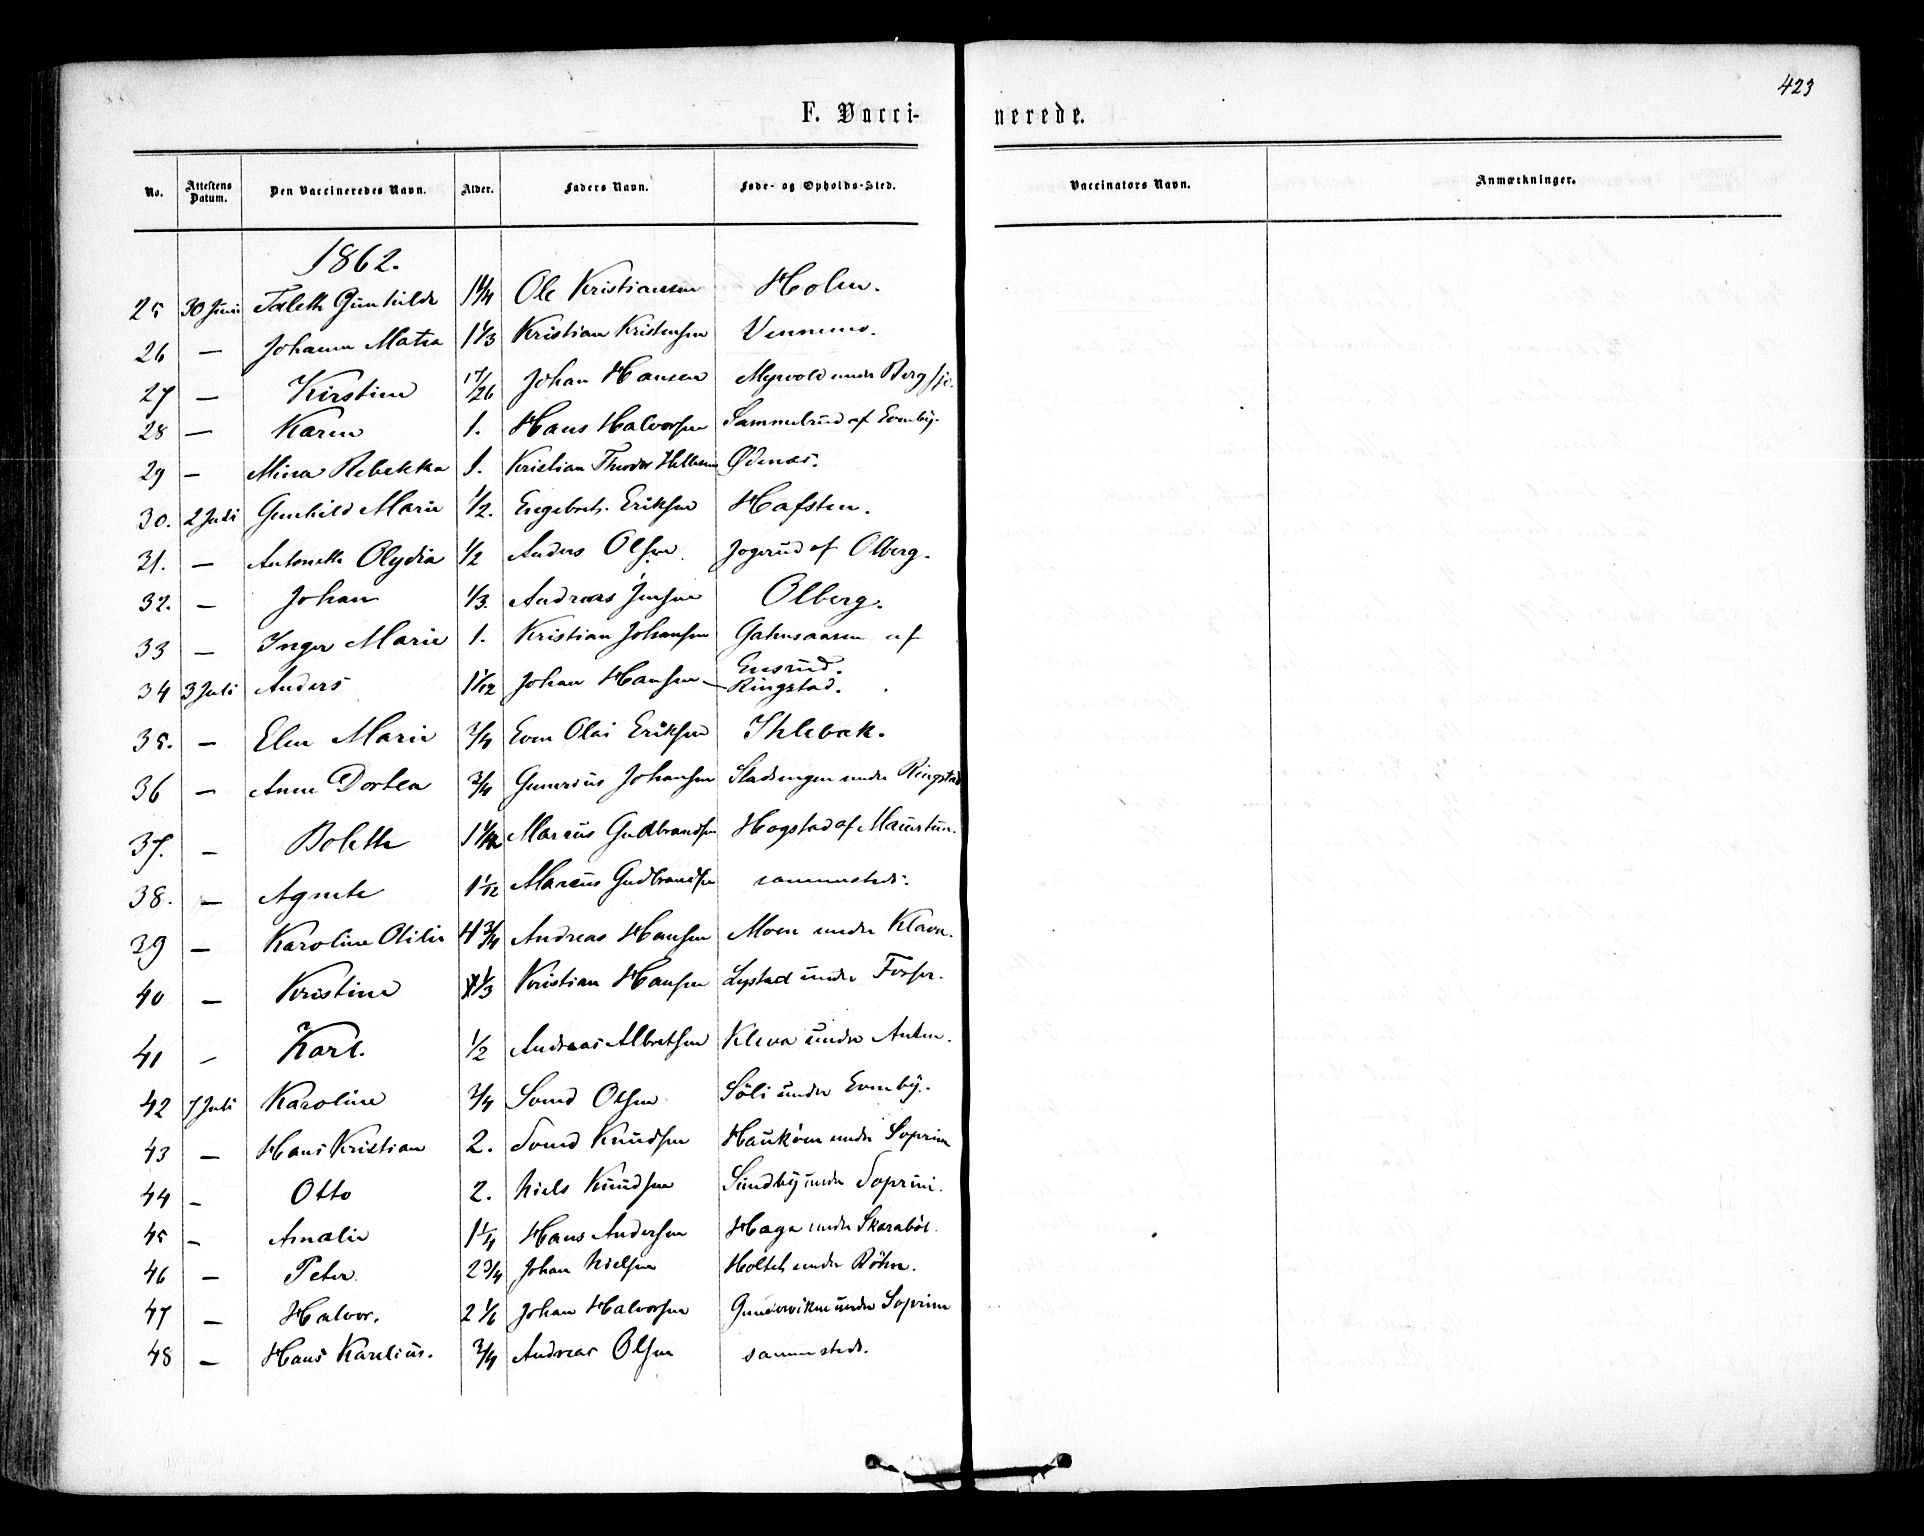 423
F. Vacci- nerede.
No. Attestens Datum. Den Vaccineredes Navn. Alder. Faders Navn. Føde- og Opholds-Sted. Vaccinators Navn. Anmærkninger.
1862.
25 30 Juni Taleth Gunhilde Ole Kristiansen Holm.
26 — Johanne Matea 1 1/3 Kristian Kristensen Vennemo.
27 — Kirstine 17/26 Johan Hansen Myrvold under Bergsje.
28 — Karen 1. Hans Halvorsen Sammelrud af Evenby.
29 — Mina Rebekka 1. Kristian Theodor Ødenæs.
30. 2 Juli Gunhild Marie 1/2. Engebret Eriksen Hafsten.
31. — Antonette Olydia 1/2 Anders Olsen. Jogerud af Olberg.
32. — Johan 1/3. Andreas Jensen Olberg.
33 — Inger Marie 1. Kristian Johansen Gahnsaasen af
Ensrud.
34 3 Juli Anders 1 1/12 Johan Hansen — Ringstad.
35. — Elen Marie 3/4 Even Olai Eriksen Ihlebæk.
36 — Anne Dortea 3/4 Gunerius Johansen Stadsengen under Ringstad
37. — Bolette 1 1/12 Marcus Gudbrandsen Hogstad af Maurtun.
38. — Agnete 1 1/12 Marcus Gudbrandsen sammesteds.
39 — Karoline Otilie 4 3/4 Andreas Hansen Moen under Klavn.
40 — Kristine 1/3 Kristian Hansen Lystad under Fosser.
41 — Karl. 1/2 Andreas Albretsen Kleva under Anken.
42 7 Juli Karoline 3/4 Svend Olsen Söli under Evenby.
43 — Hans Kristian 2. Svend Knudsen Haukåen under Soprim
44 — Otto 2. Niels Knudsen Sundby under Soprim.
45 — Amalie 1 1/4 Hans Andersen Haga under Skaraböl.
46 — Peter. 2 3/4 Johan Nielsen Holtet under Böhn.
47 — Halvor. 2 1/6 Johan Halvorsen Gunderviken under Soprim
48 — Hans Karelius. 3/4 Andreas Olsen sammesteds.